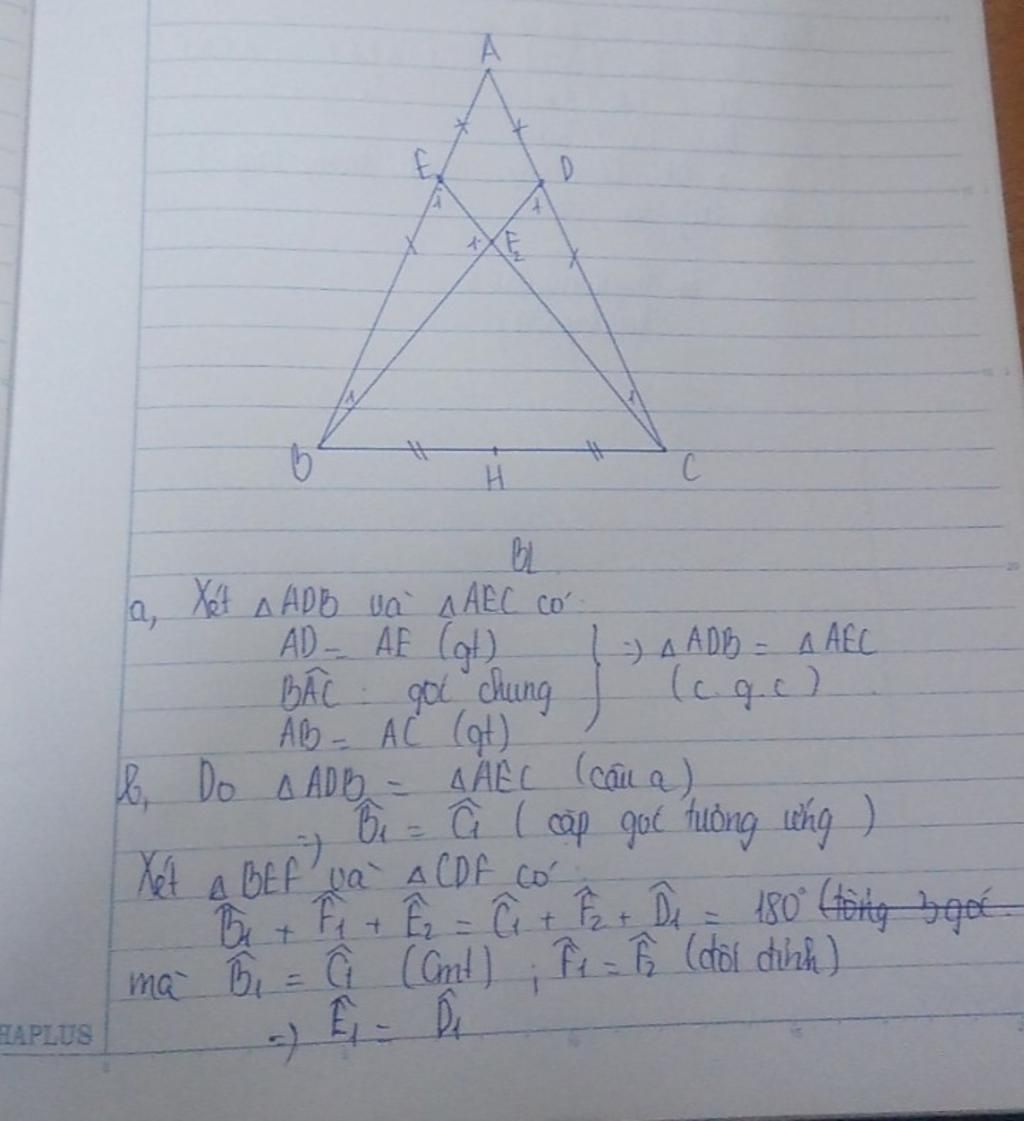 A
E
D
1
1
1
F
2
1
1
B
H
C
BL
a, Xét △ADB và △AEC có:
AD = AE (gt)
BÂC: góc chung
AB = AC (gt)
=) △ADB = △AEC
(c.g.c)
b, Do △ADB = △AEC (câu a)
=) B̂1 = Ĉ1 (cặp góc tương ứng)
Xét △BEF và △CDF có:
B̂1 + F̂1 + Ê2 = Ĉ1 + F̂2 + D̂1 = 180° (tổng 3 góc
mà B̂1 = Ĉ1 (Cmt) ; F̂1 = F̂2 (đối đỉnh)
=) Ê1 = D̂1
HAPLUS